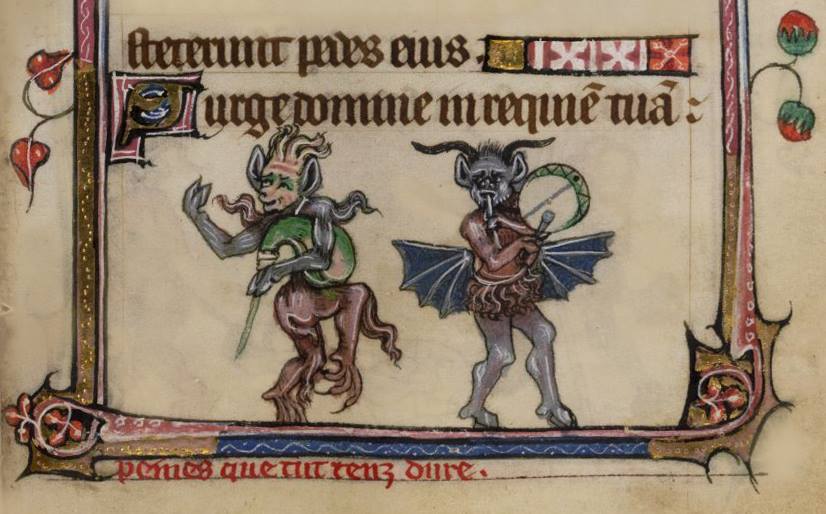 steterunt pedes eius.
Surge domine in requiē tuā :
peines que tut tenz dure.